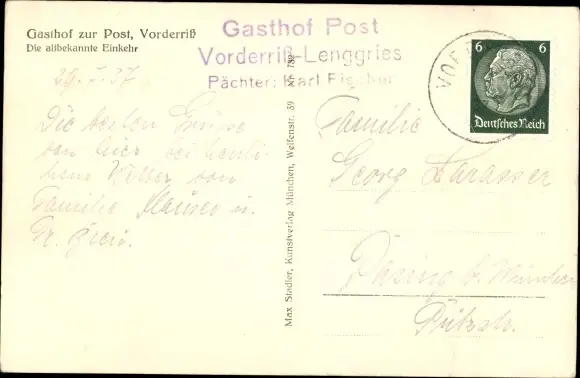 Gasthof zur Post, Vorderriß
Die altbekannte Einkehr
Gasthof Post
Vorderriß-Lenggries
Pächter: Karl Fischer
29. 7. 37
Die besten Grüsse
von hier bei herrli-
chem Wetter von
Familie u.
Max Stadler, Kunstverlag München, Welfenstr. 39 Nr. 789
VOR
6 6
Deutsches Reich
Familie
Georg
Pasing b. München